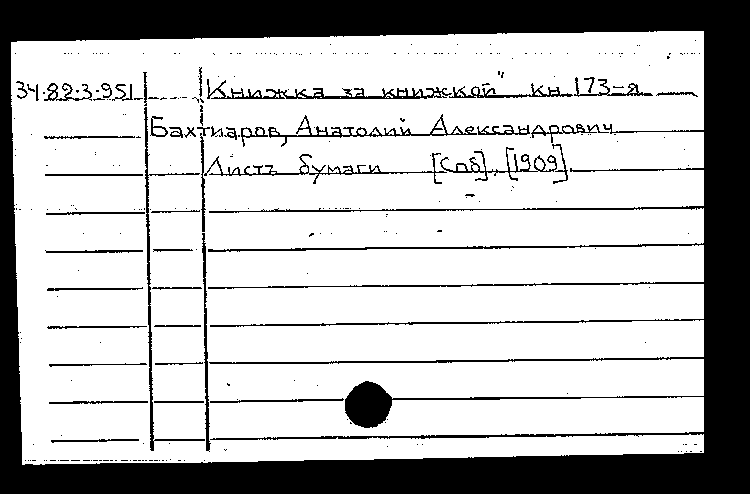 34·82·3·951 Книжка за книжкой" кн 173-я
Бахтиаров, Анатолий Александрович
Листъ бумаги [Спб], [1909].